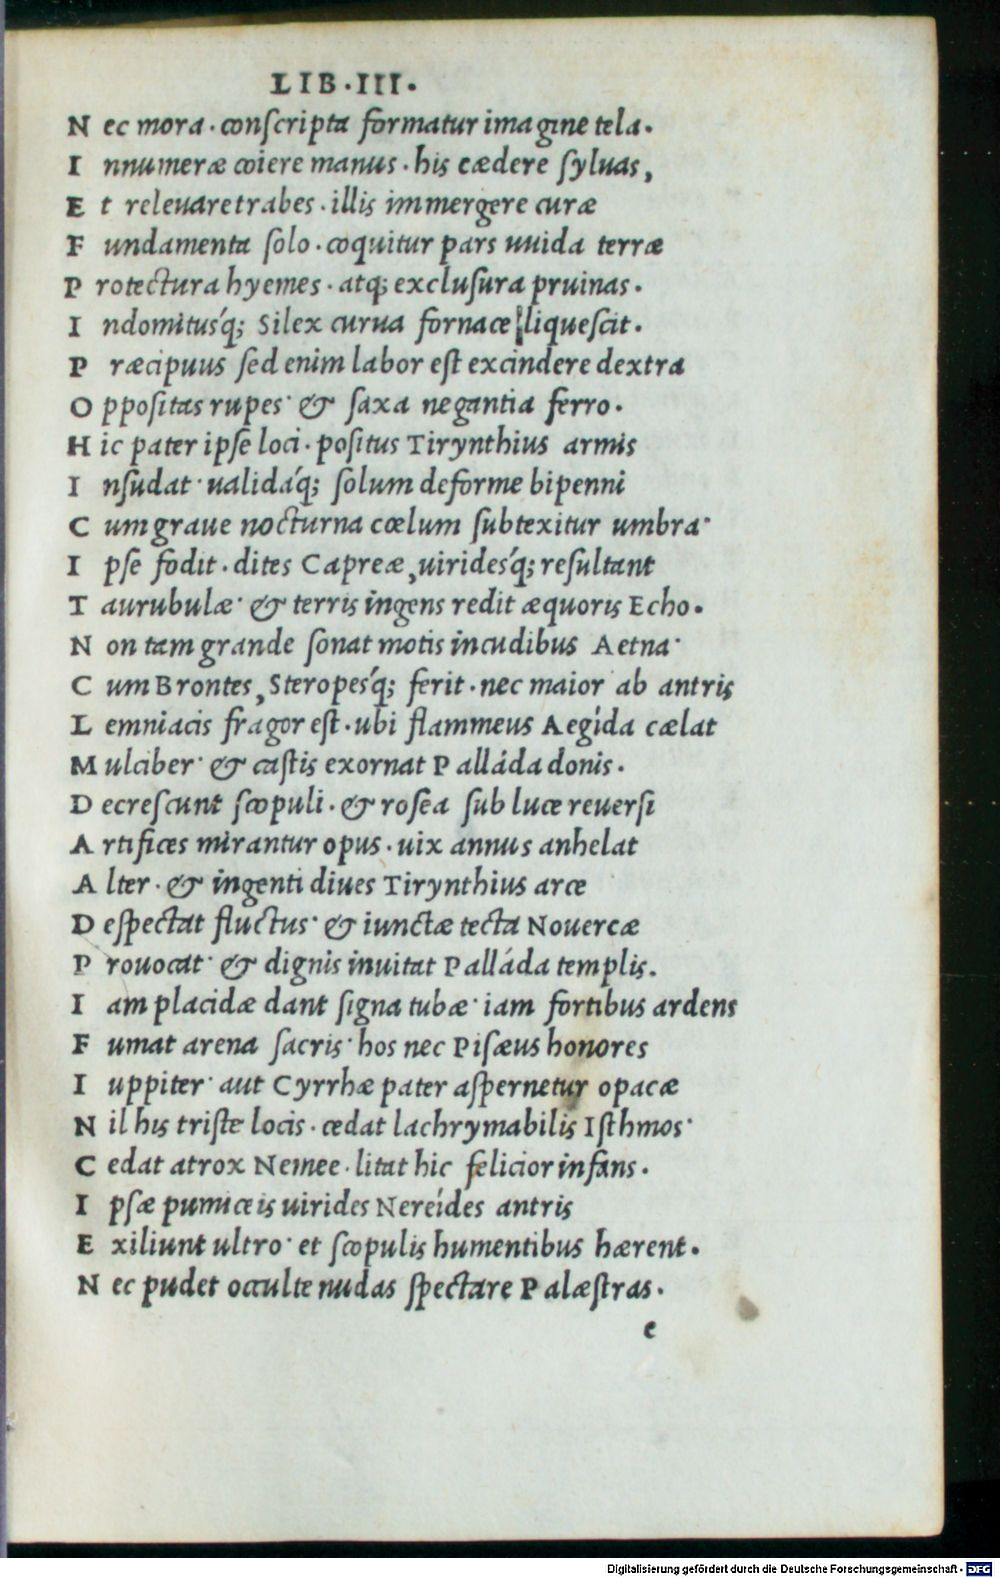 LIB·III·
N ec mora· conſcripta formatur imagine tela.
I nnumeræ coiere manus· his cædere ſyluas,
E t releuare trabes· illis immergere curæ
F undamenta ſolo· coquitur pars uuida terræ
P rotectura hyemes· atq; excluſura pruinas·
I ndomitusq́; Silex curua fornace liqueſcit.
P ræcipuus ſed enim labor eſt excindere dextra
O ppoſitas rupes· & ſaxa negantia ferro.
H ic pater ipſe loci· poſitus Tirynthius armis
I nſudat· ualidaq́; ſolum deforme bipenni
C um graue nocturna cœlum ſubtexitur umbra·
I pſe fodit· dites Capreæ, uiridesq́; reſultant
T aurubulæ· & terris ingens redit æquoris Echo.
N on tam grande ſonat motis incudibus Aetna·
C um Brontes, Steropesq́; ferit· nec maior ab antris
L emniacis fragor eſt· ubi flammeus Aegída cælat
M ulciber· & caſtis exornat Palláda donis.
D ecreſcunt ſcopuli· & roſea ſub luce reuerſi
A rtifices mirantur opus· uix annus anhelat
A lter· & ingenti diues Tirynthius arce
D eſpectat fluctus· & iunctæ tecta Nouercæ
P rouocat· & dignis inuitat Palláda templis.
I am placidæ dant ſigna tubæ· iam fortibus ardens
F umat arena ſacris· hos nec Piſæus honores
I uppiter· aut Cyrrhæ pater aſpernetur opacæ
N il his triſte locis· cedat lachrymabilis Iſthmos·
C edat atrox Nemee· litat hic felicior infans.
I pſæ pumiceis uirides Nereídes antris
E xiliunt ultro· et ſcopulis humentibus hærent.
N ec pudet occulte nudas ſpectare Palæſtras.
e
Digitalisierung gefördert durch die Deutsche Forschungsgemeinschaft - DFG